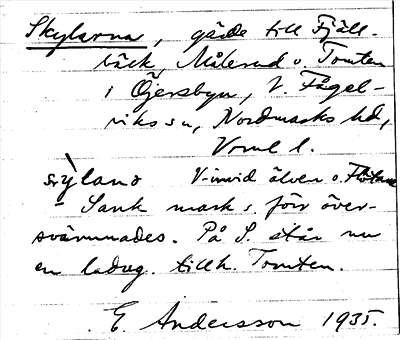 Skylarna, gärde till Fjäll-
bäck, Målerud o. Tomten
i Öjersbyn, V. Fågel-
viks sn, Nordmarks hd,
Vrml l.
sỳlanə V invid älven o.
- Sank mark s. förr över-
svämmades. På S. står nu
en ladug. tillh. Tomten.
E. Andersson 1935.